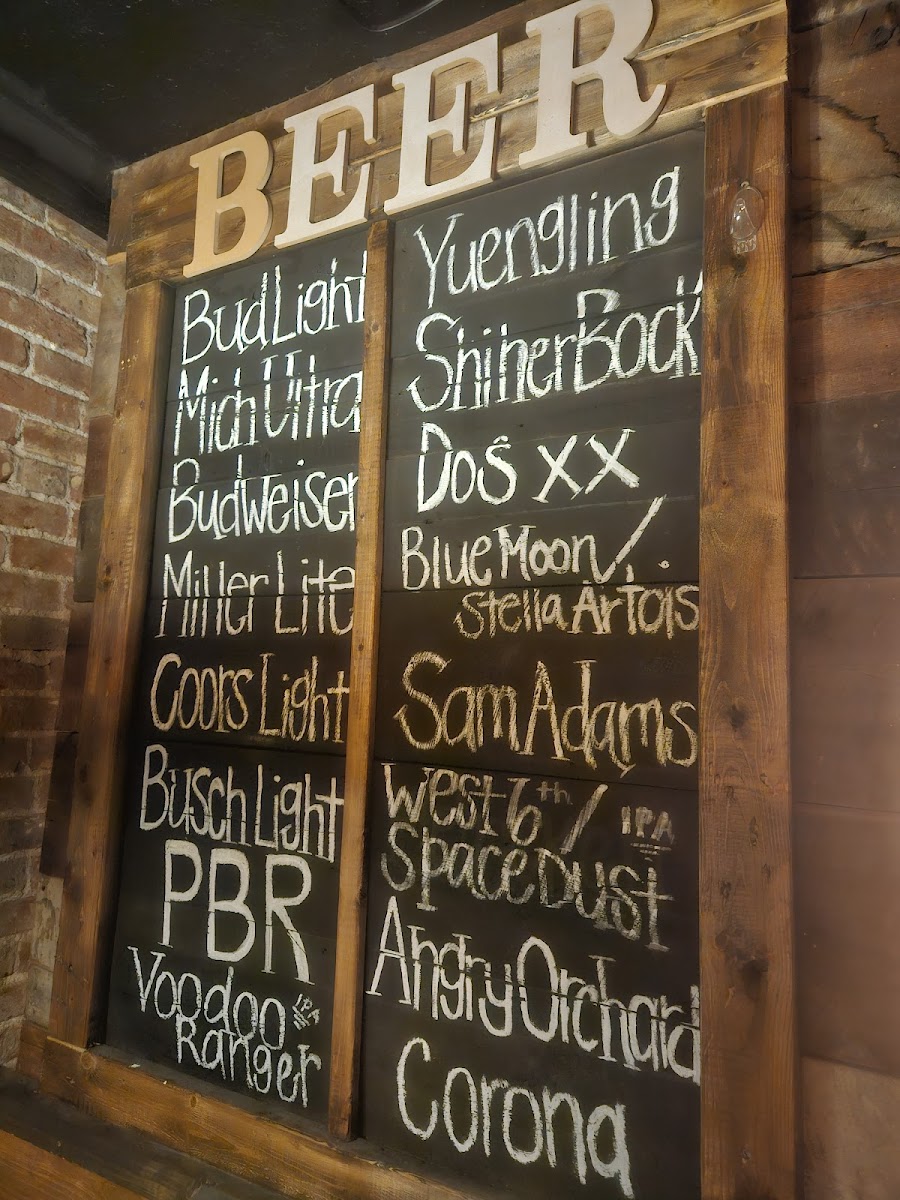 BEER
Bud Light
Mich Ultra
Budweiser
Miller Lite
Coors Light
Busch Light
PBR
Voodoo IPA
Ranger
Yuengling
Shiner Bock
Dos XX
Blue Moon /
Stella Artois
Sam Adams
West 6th / IPA
Space Dust
Angry Orchard
Corona